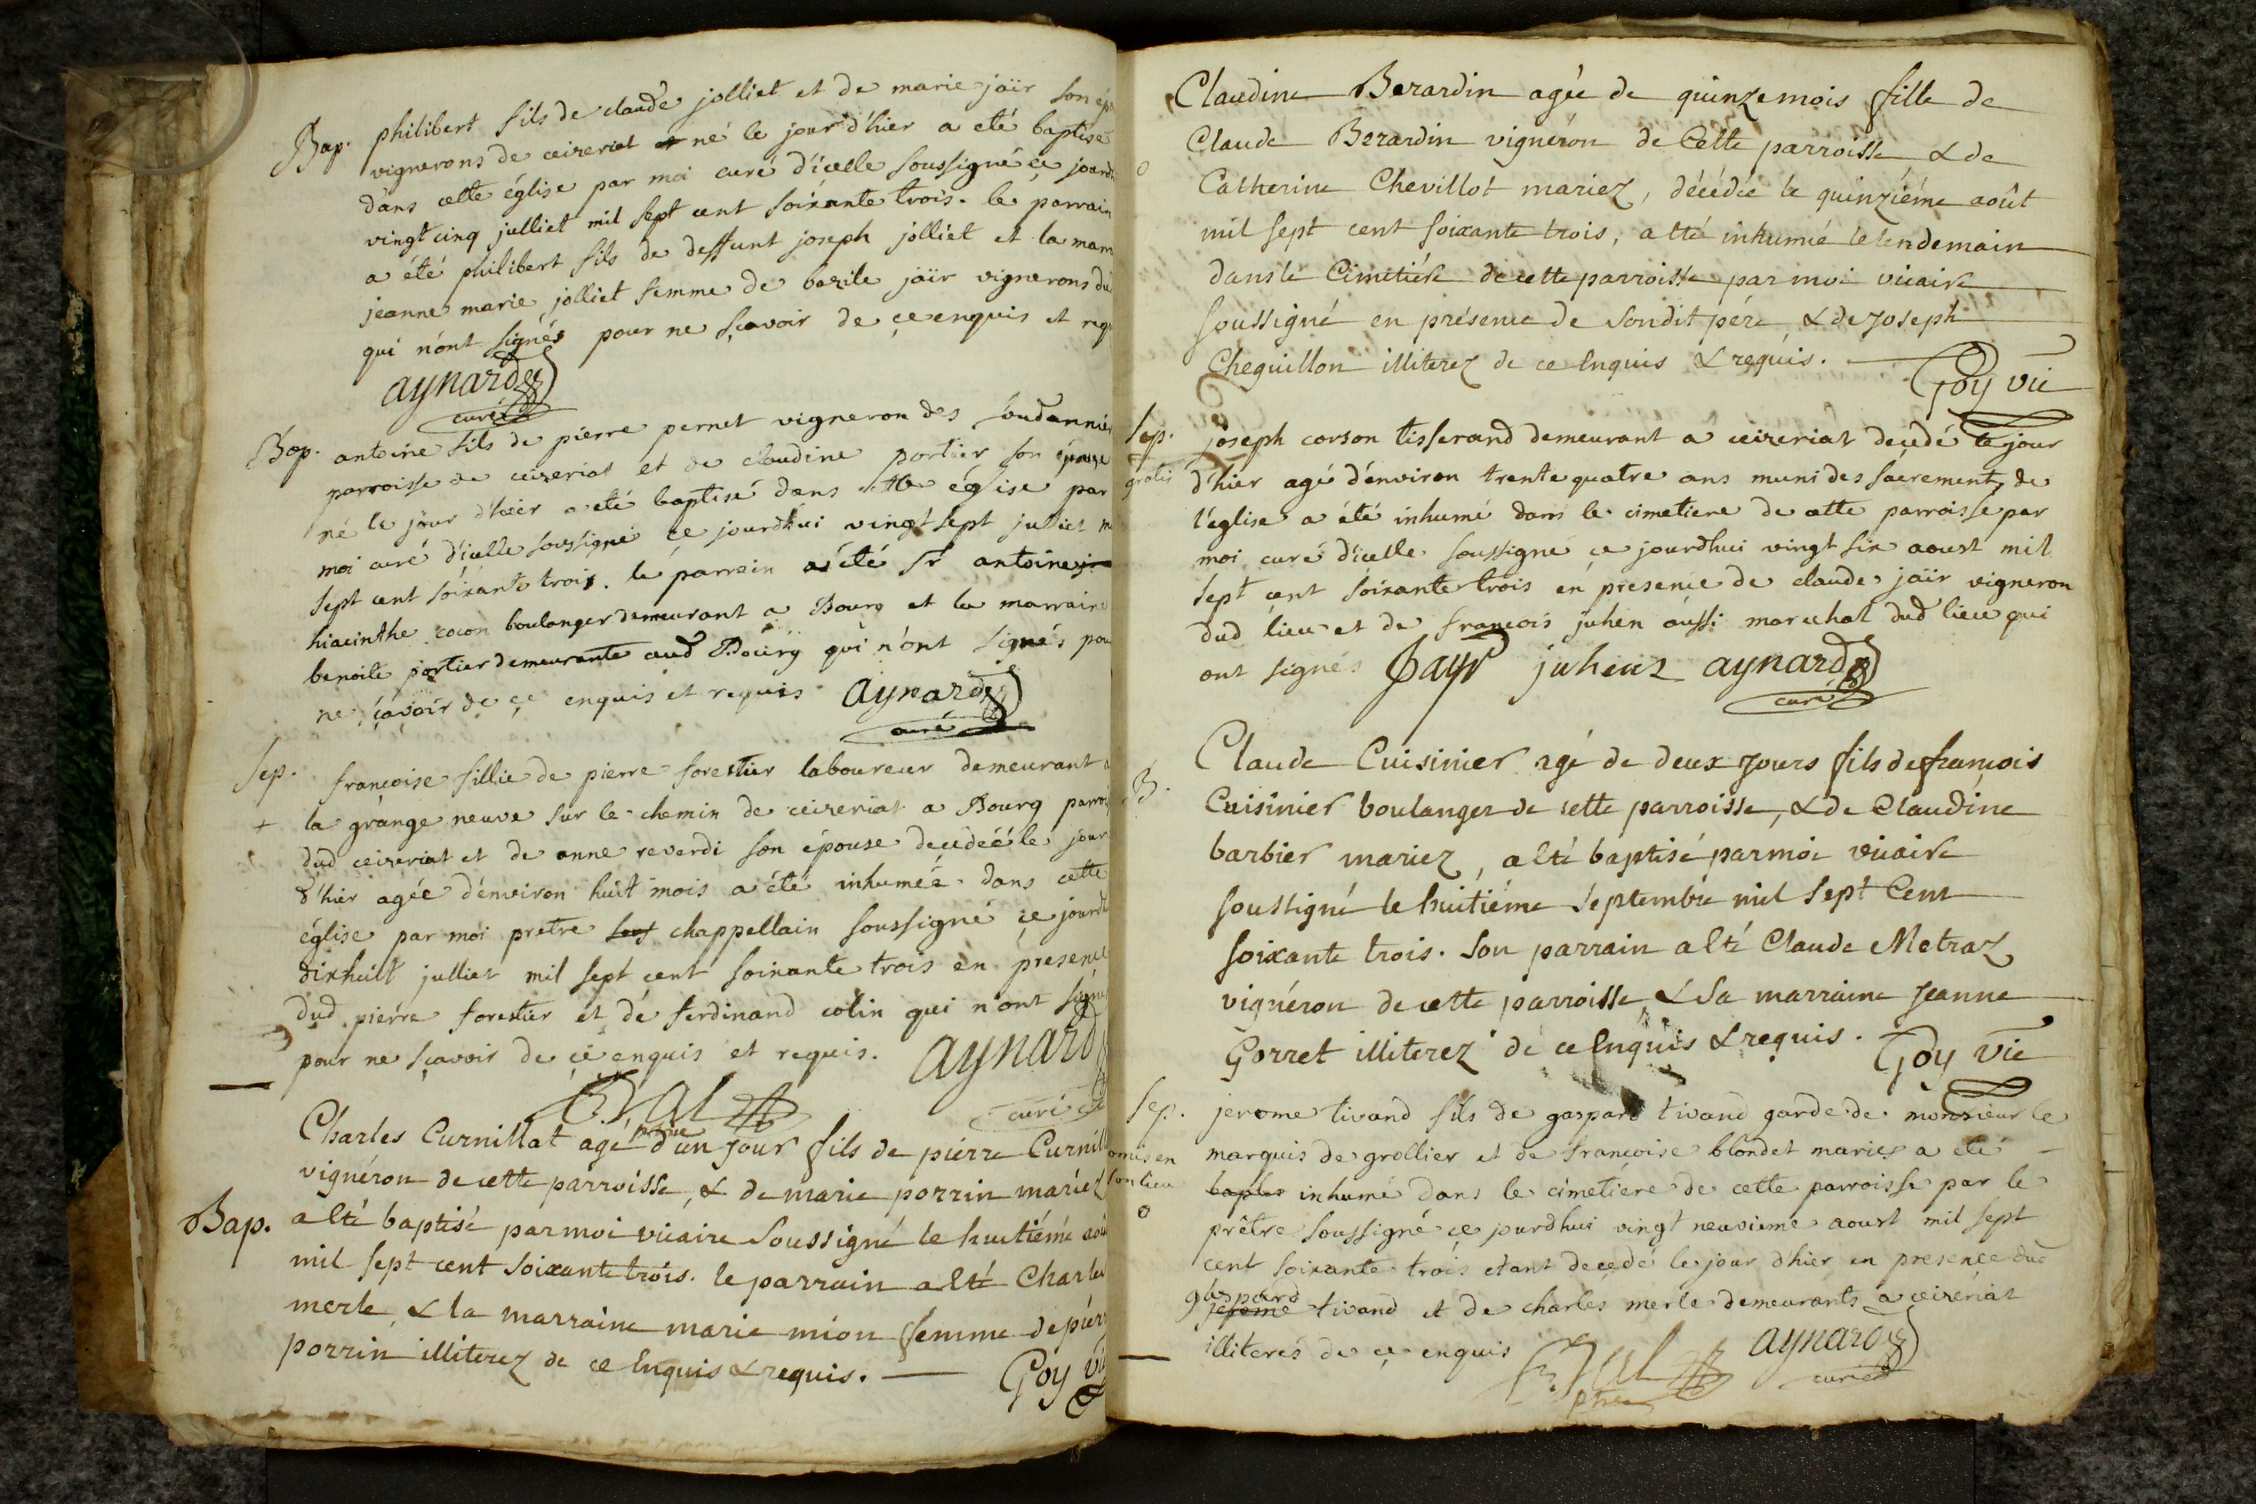 Bap. philibert fils de claude jolliet et de marie jaïr son
vignerons de ceizeriat né le jour d'hier a eté baptisé
dans cette église par moi curé d'icelle soussigné ce
vingt cinq julliet mil sept cent soixante trois. le parrain
a été philibert fils de deffunt joseph jolliet et la
jeanne marie jolliet femme de bazile jaïr vignerons
qui n'ont signés pour ne sçavoir de ce enquis et
aynard
curé
Bap. antoine fils de pierre pernet vigneron des
parroisse de ceizeriat et de claudine portier son épouse
né le jour d'hier a eté baptisé dans cette église par
moi curé d'icelle soussigné ce jourdhui vingt sept julliet
sept cent soixante trois. le parrain a été Sr antoine
hiacinthe cocon boulanger demeurant a Bourg et la marraine
benoite portier demeurante aud Bourg qui n'ont signés
ne sçavoir de ce enquis et requis aynard
curé
Sep. françoise fillie de pierre forestier laboureur demeurant
+ la grange neuve sur le chemin de ceizeriat a Bourg
dud ceizeriat et de anne reverdi son épouse decedéé le jour
d'hier agée d'environ huit mois a été inhumée dans cette
église par moi pretre sous chappellain soussigné ce
dixhuit julliet mil sept cent soixante trois en présence
dud pierre forestier et de ferdinand colin qui n'ont
pour ne sçavoir de ce enquis et requis. aynard
curé
Charles Curnillat agé d'un Jour fils de pierre
vignéron de cette parroisse, & de marie porrin mariez
Bap. a Eté baptisé par moi vicaire Soussigné le huitiéme
mil sept cent Soixante trois. le parrain a Eté Charles
merle, & la marraine marie mion femme de
porrin illiterez de ce Enquis & requis. Goy
Claudine Berardin agée de quinze mois fille de
Claude Berardin vignéron de Cette parroisse & de
o Catherine Chevillot mariez, décédée le quinziéme août
mil sept cent soixante trois, a Eté inhumé le lendemain
dans le Cimetiére de cette parroisse par moi vicaire
soussigné en présence de Sondit pére & de Joseph
Cheguillon illiterez de ce Enquis & requis.
Goy vic
Sep. joseph corson tisserand demeurant a ceizeriat decedé le jour
gratis d'hier agé d'environ trente quatre ans muni des sacrements de
l'église a été inhumé dans le cimetiere de cette parroisse par
moi curé d'icelle soussigné ce jourdhui vingt six aoust mil
sept cent soixante trois en presence de claude jaïr vigneron
dud lieu et de françois juhen aussi marechal dud lieu qui
ont signés Jayr juhenz aynard
curé
Claude Cuisinier agé de deux Jours fils de francois
B. Cuisinier boulanger de cette parroisse, & de Claudine
barbier mariez, a Eté baptisé par moi vicaire
soussigné le huitiéme Septembre mil Sept Cent
soixante trois. Son parrain a Eté Claude Metraz
vignéron de cette parroisse & Sa marraine Jeanne
Gorret illiterez de ce Enquis & requis. Goy vic
Sep. jerome tivand fils de gaspard tivand garde de monsieur le
omis en marquis de grollier et de françoise blondet mariés a été
son lieu baptes inhumé dans le cimetiére de cette parroisse par le
o prêtre soussigné ce jourdhui vingt neuvieme aoust mil sept
cent soixante trois etant decedé le jour d'hier en presence dud
gaspard
jerome tivand et de charles merle demeurants a ceizériat
illiterés de ce enquis aynard
curé